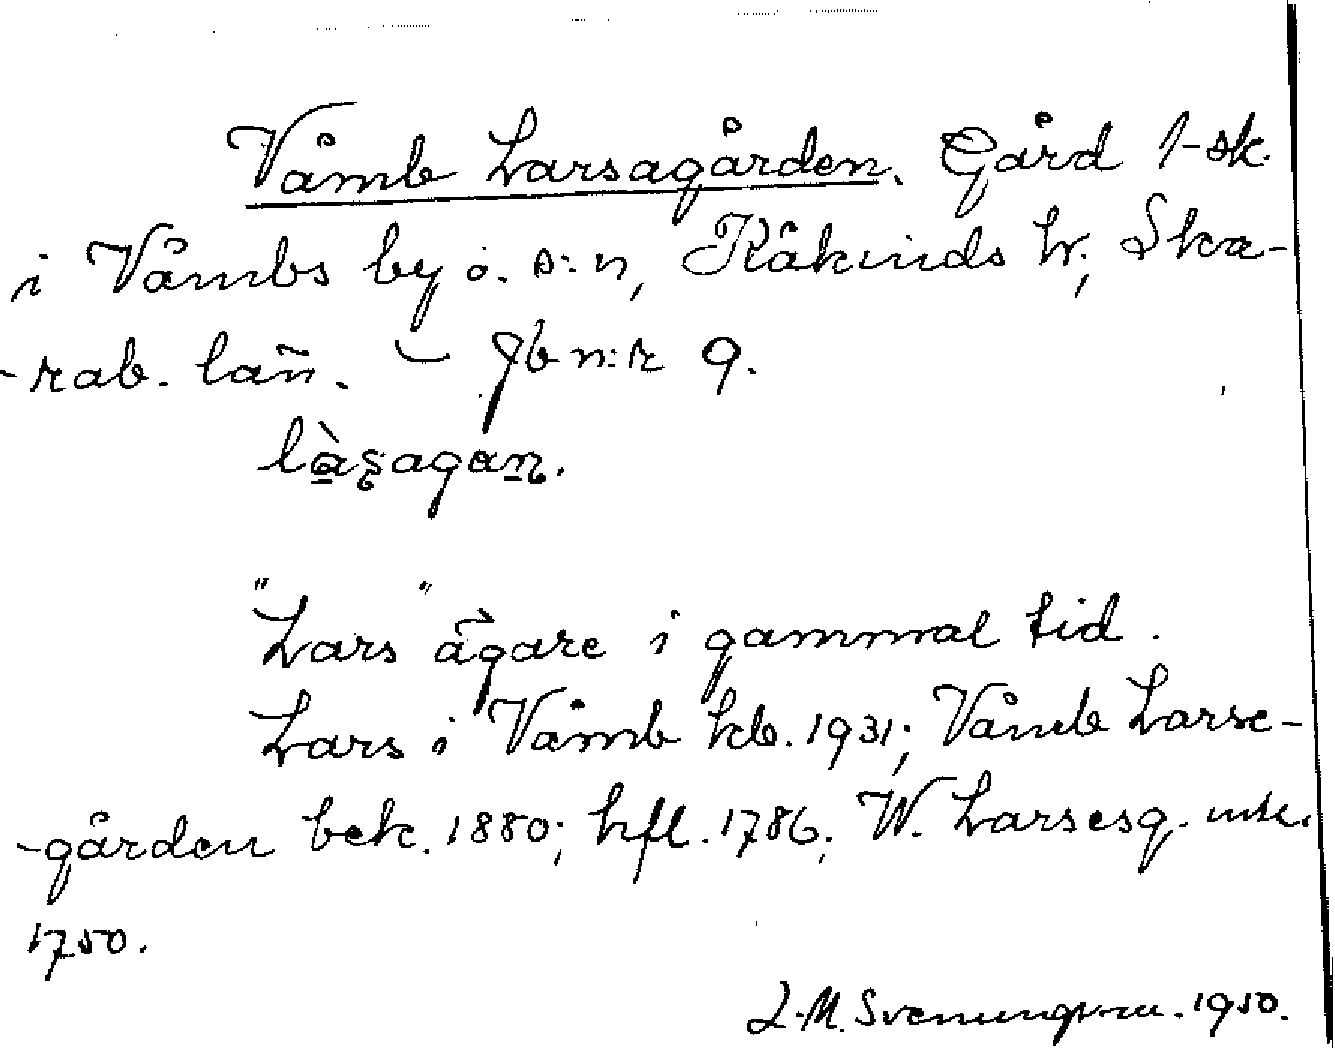 Våmb Larsagården. Gård 1-sk.
i Våmbs by o. s:n, Kåkinds hr; Ska-
-rab. län. — Jb n:r 9.
"Lars" ägare i gammal tid.
Lars i Våmb kb. 1931; Våmb Larse-
-gården bek. 1880; hfl. 1786; W. Larsesg. mtl.
1750.
L-M. Svenungsson. 1950.